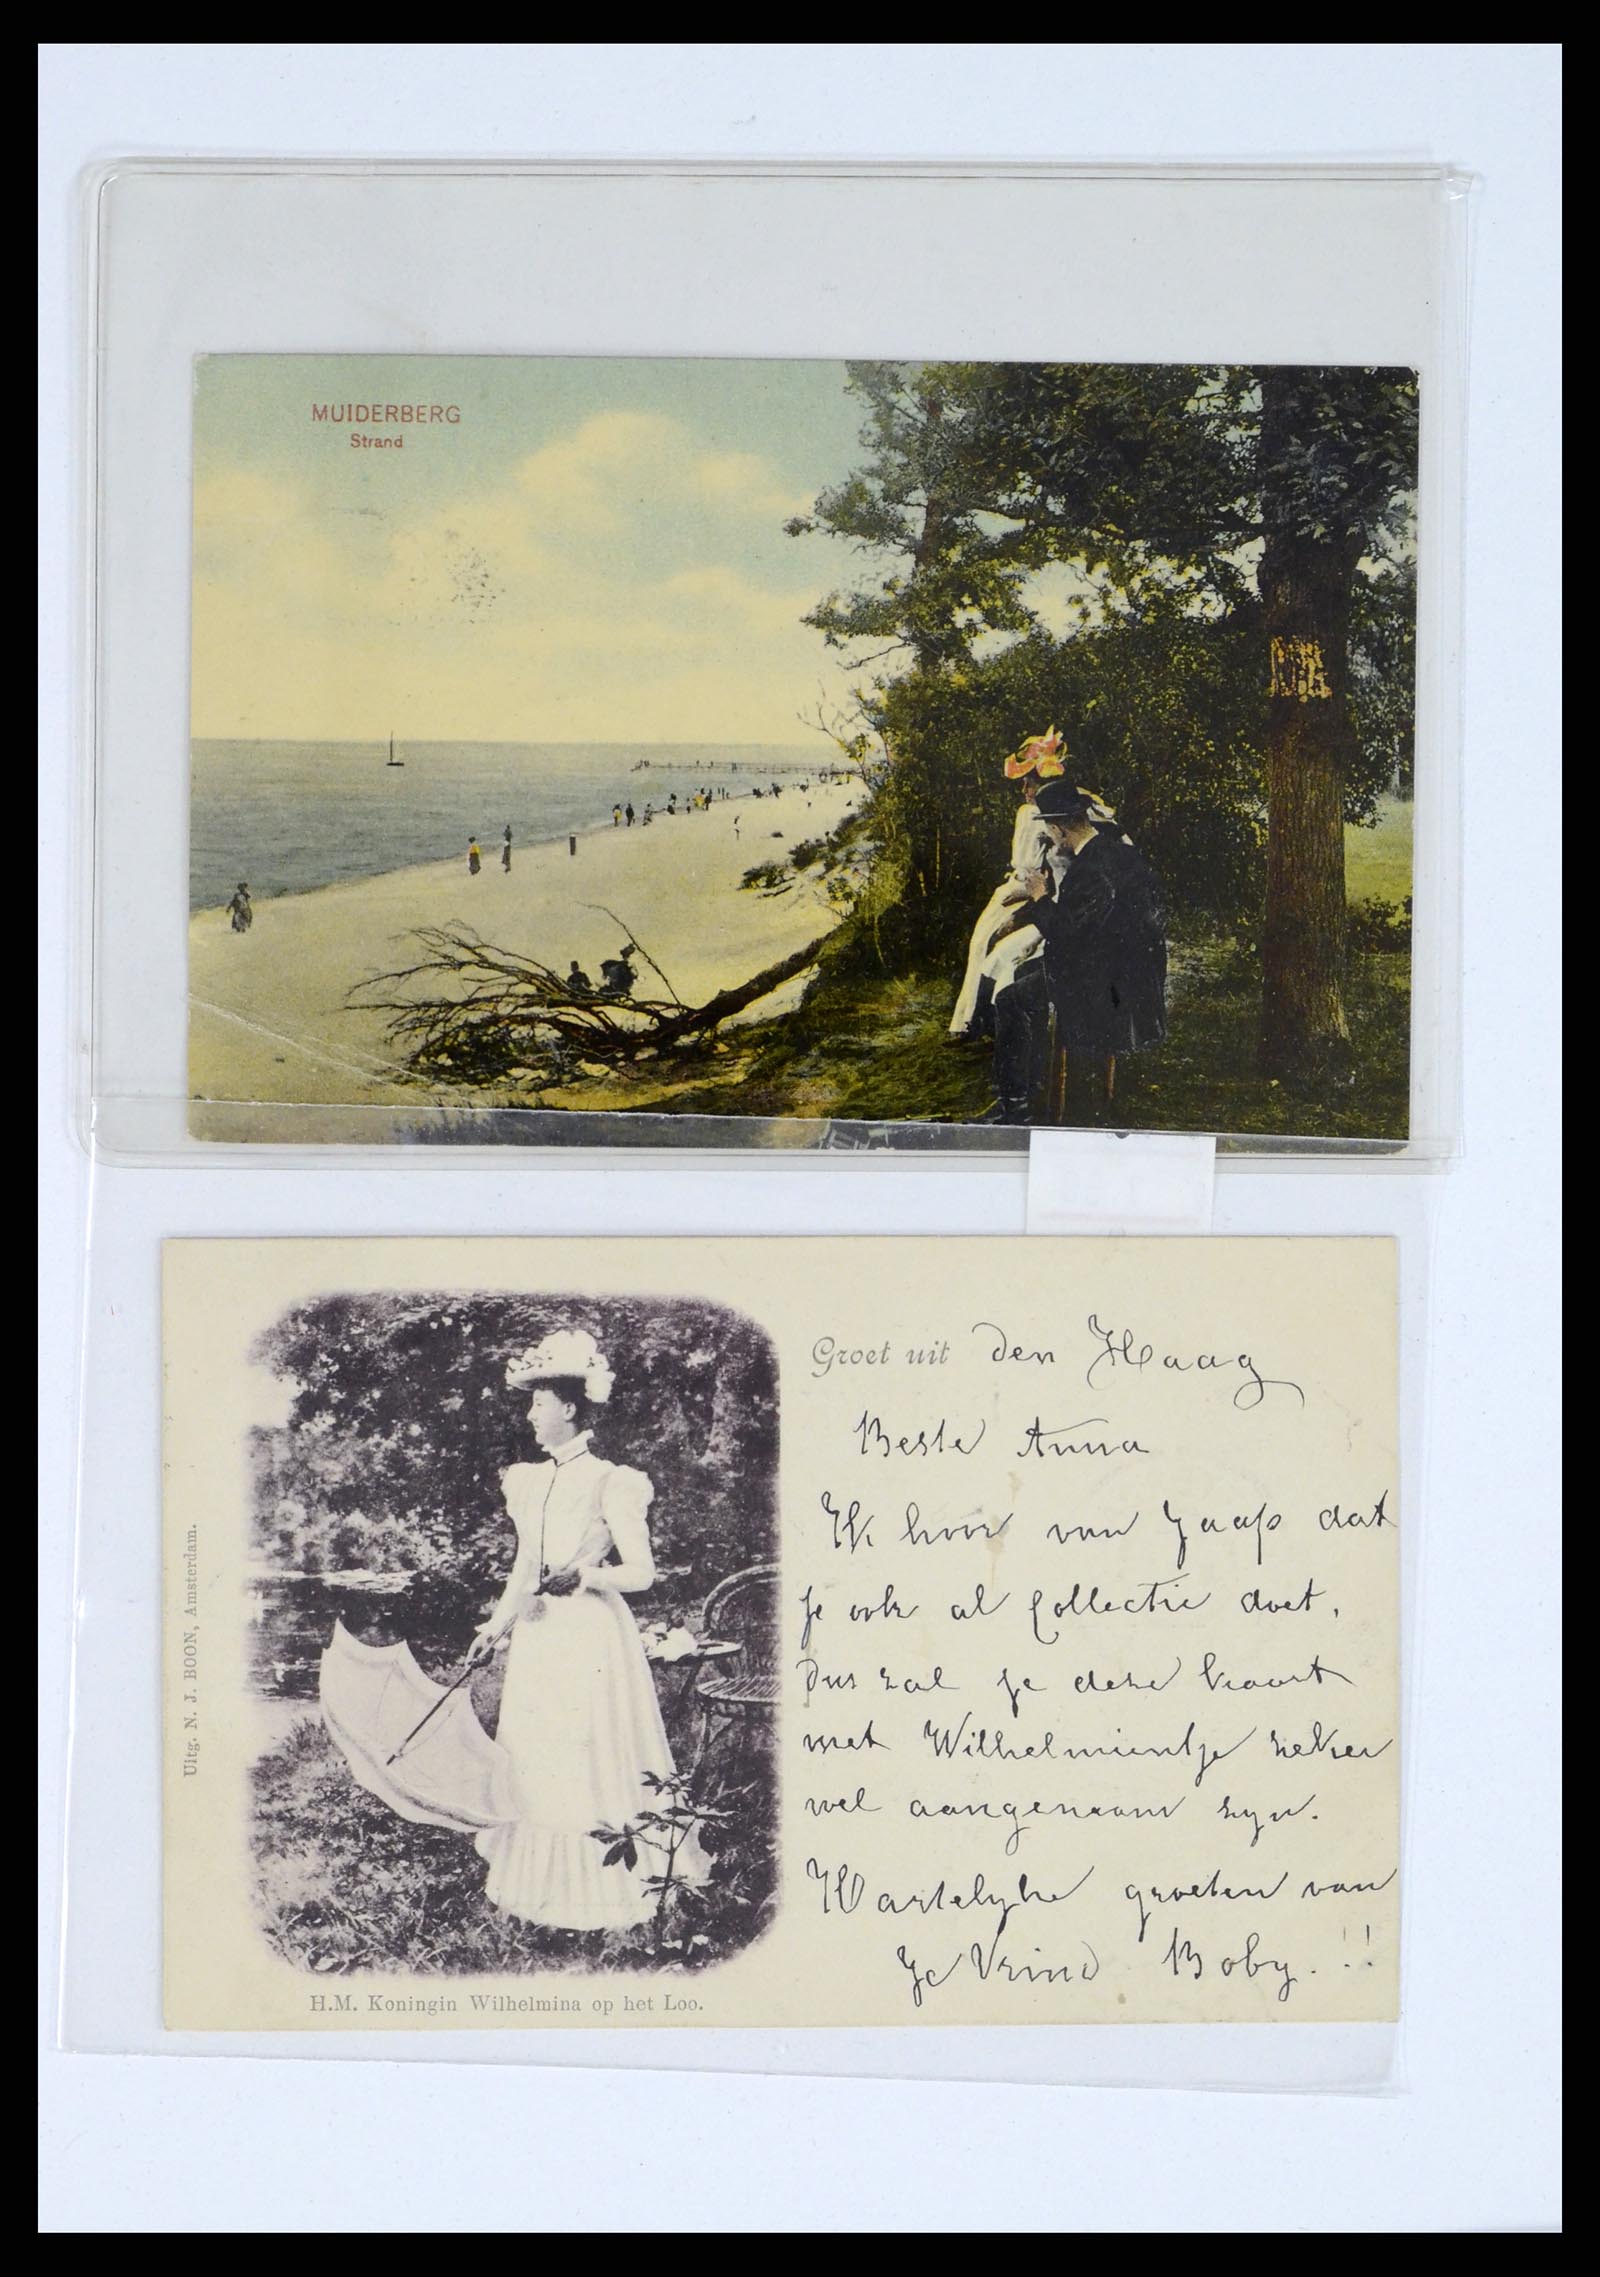 MUIDERBERG
Strand
Groet uit Den Haag
Beste Anna
Ik hoor van Jaap dat
je ook al Collectie doet,
Dus zal je deze kaart
met Wilhelmientje zeker
wel aangenaam zyn.
Hartelyke groeten van
Je Vriend Boby. !!
Uitg. N. J. BOON, Amsterdam.
H.M. Koningin Wilhelmina op het Loo.